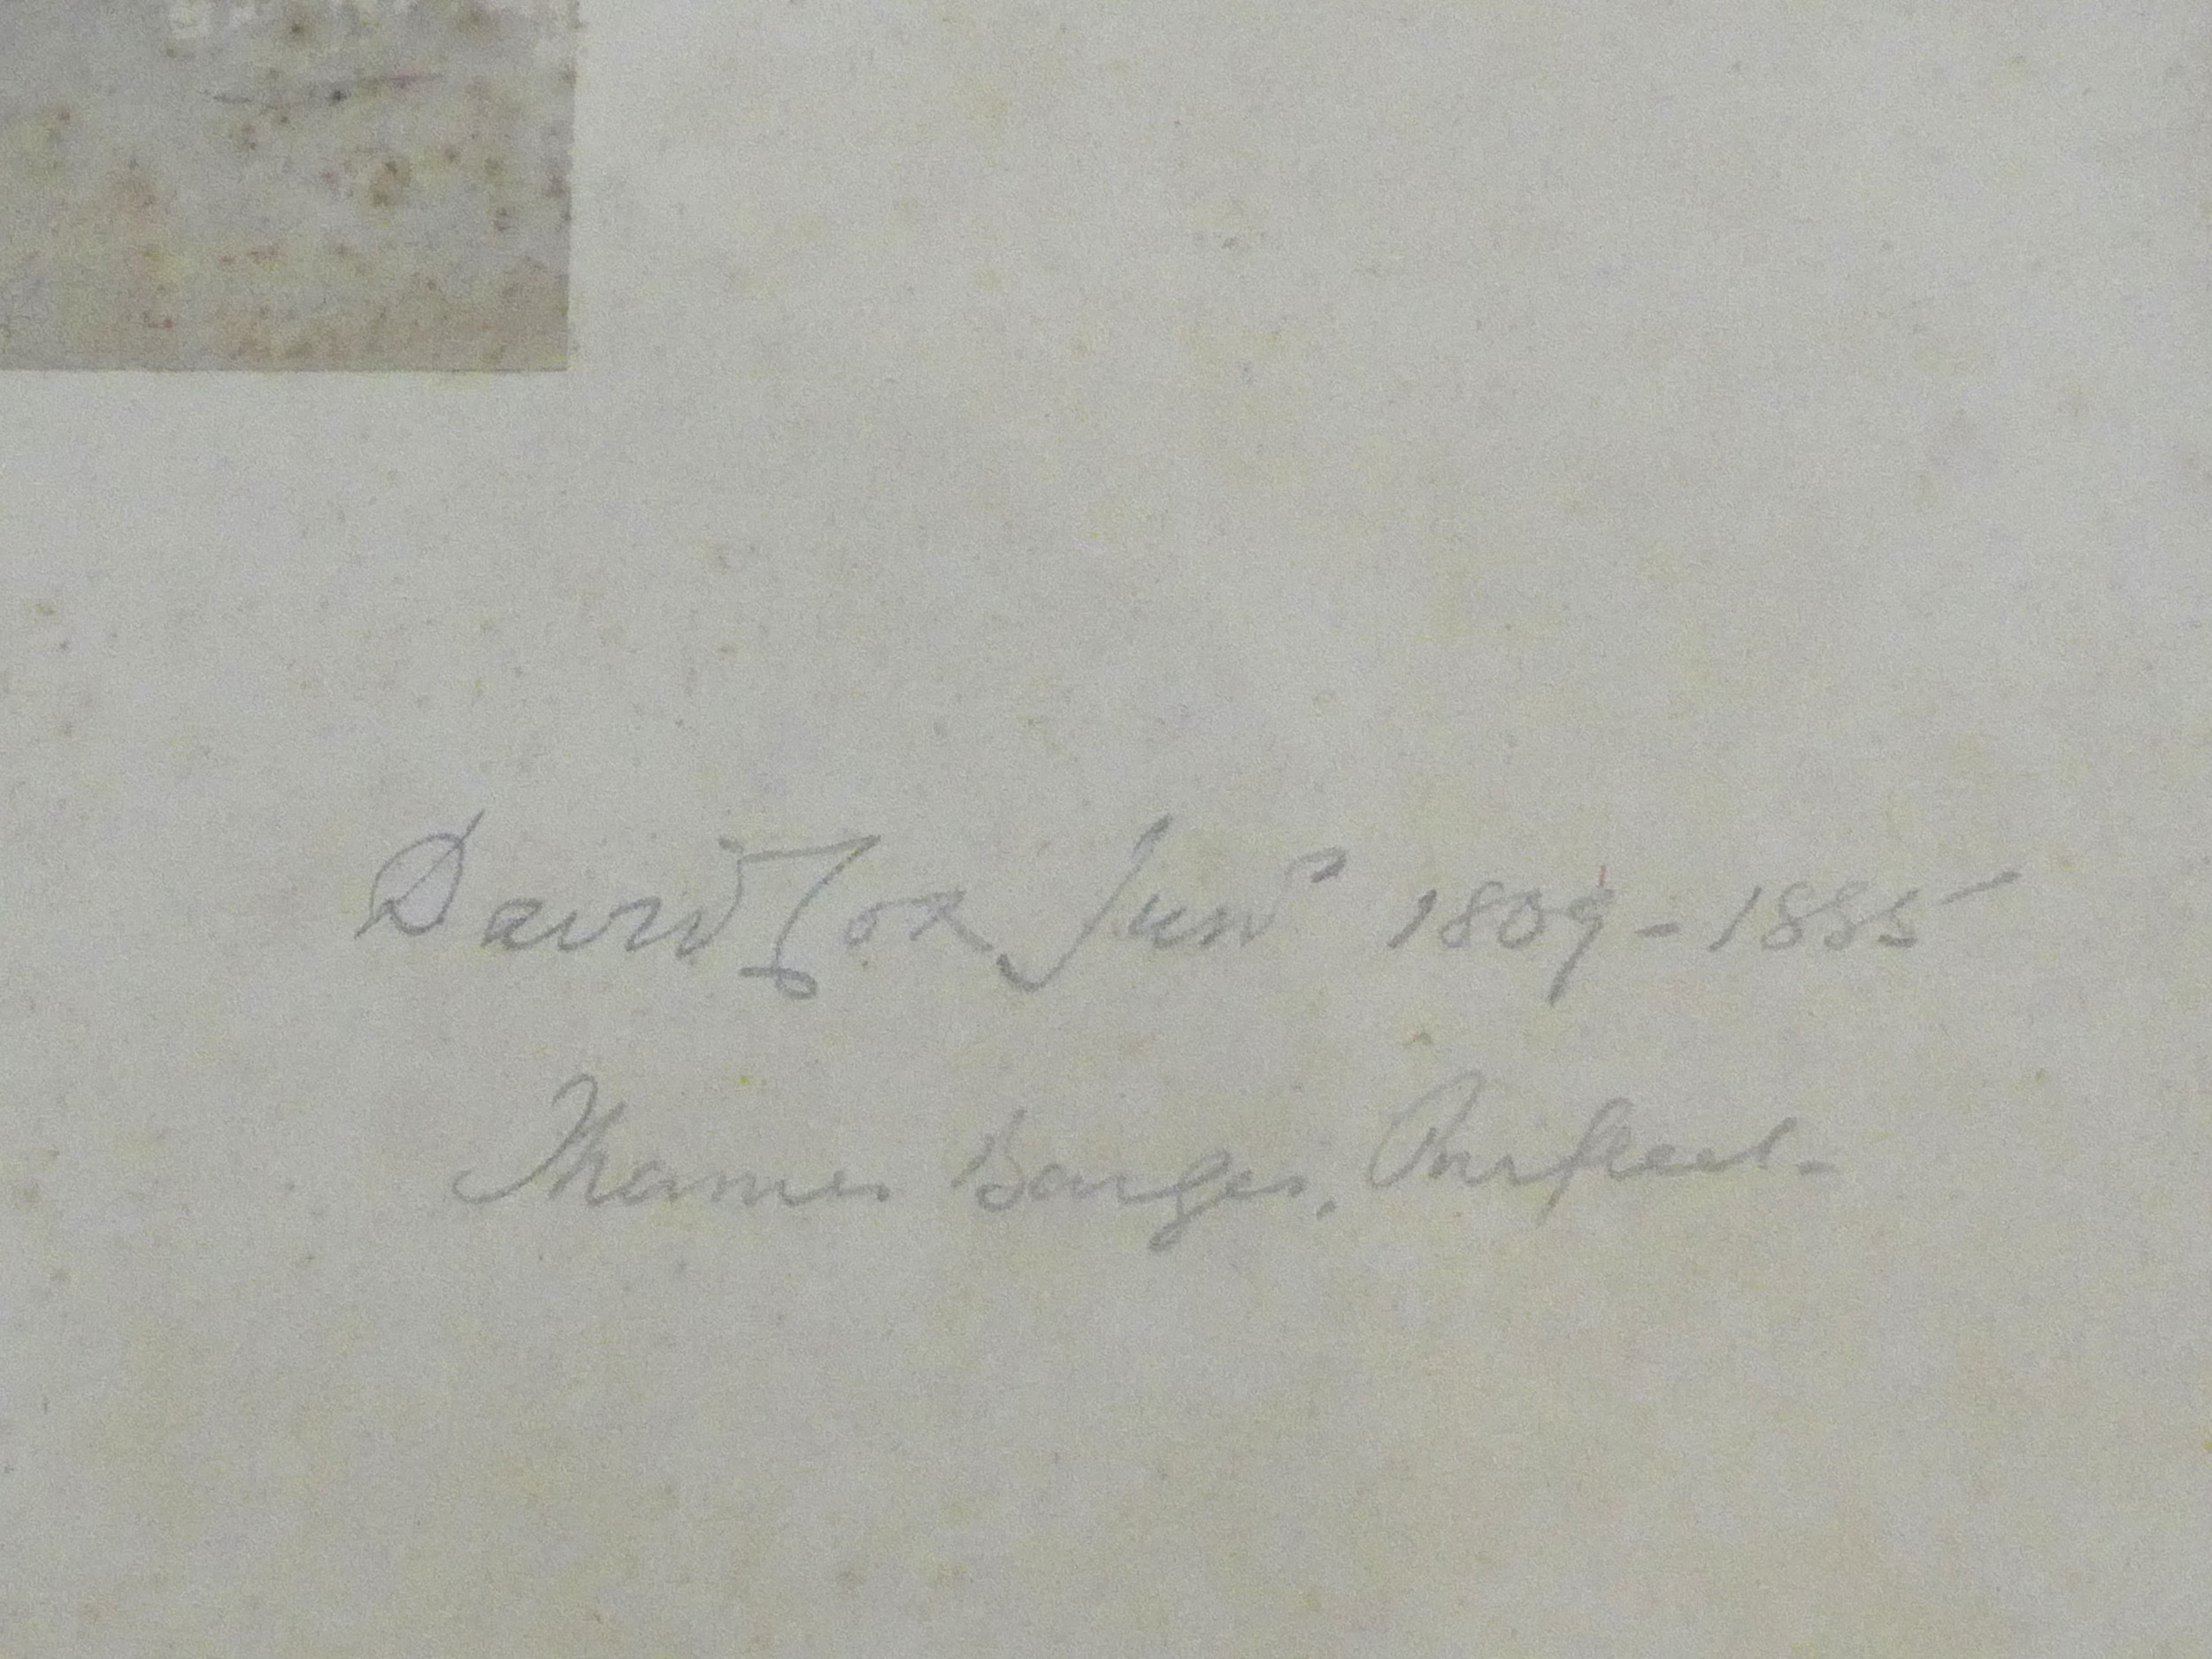 David Cox Junr 1809 - 1885
Thames Barges, Purfleet -